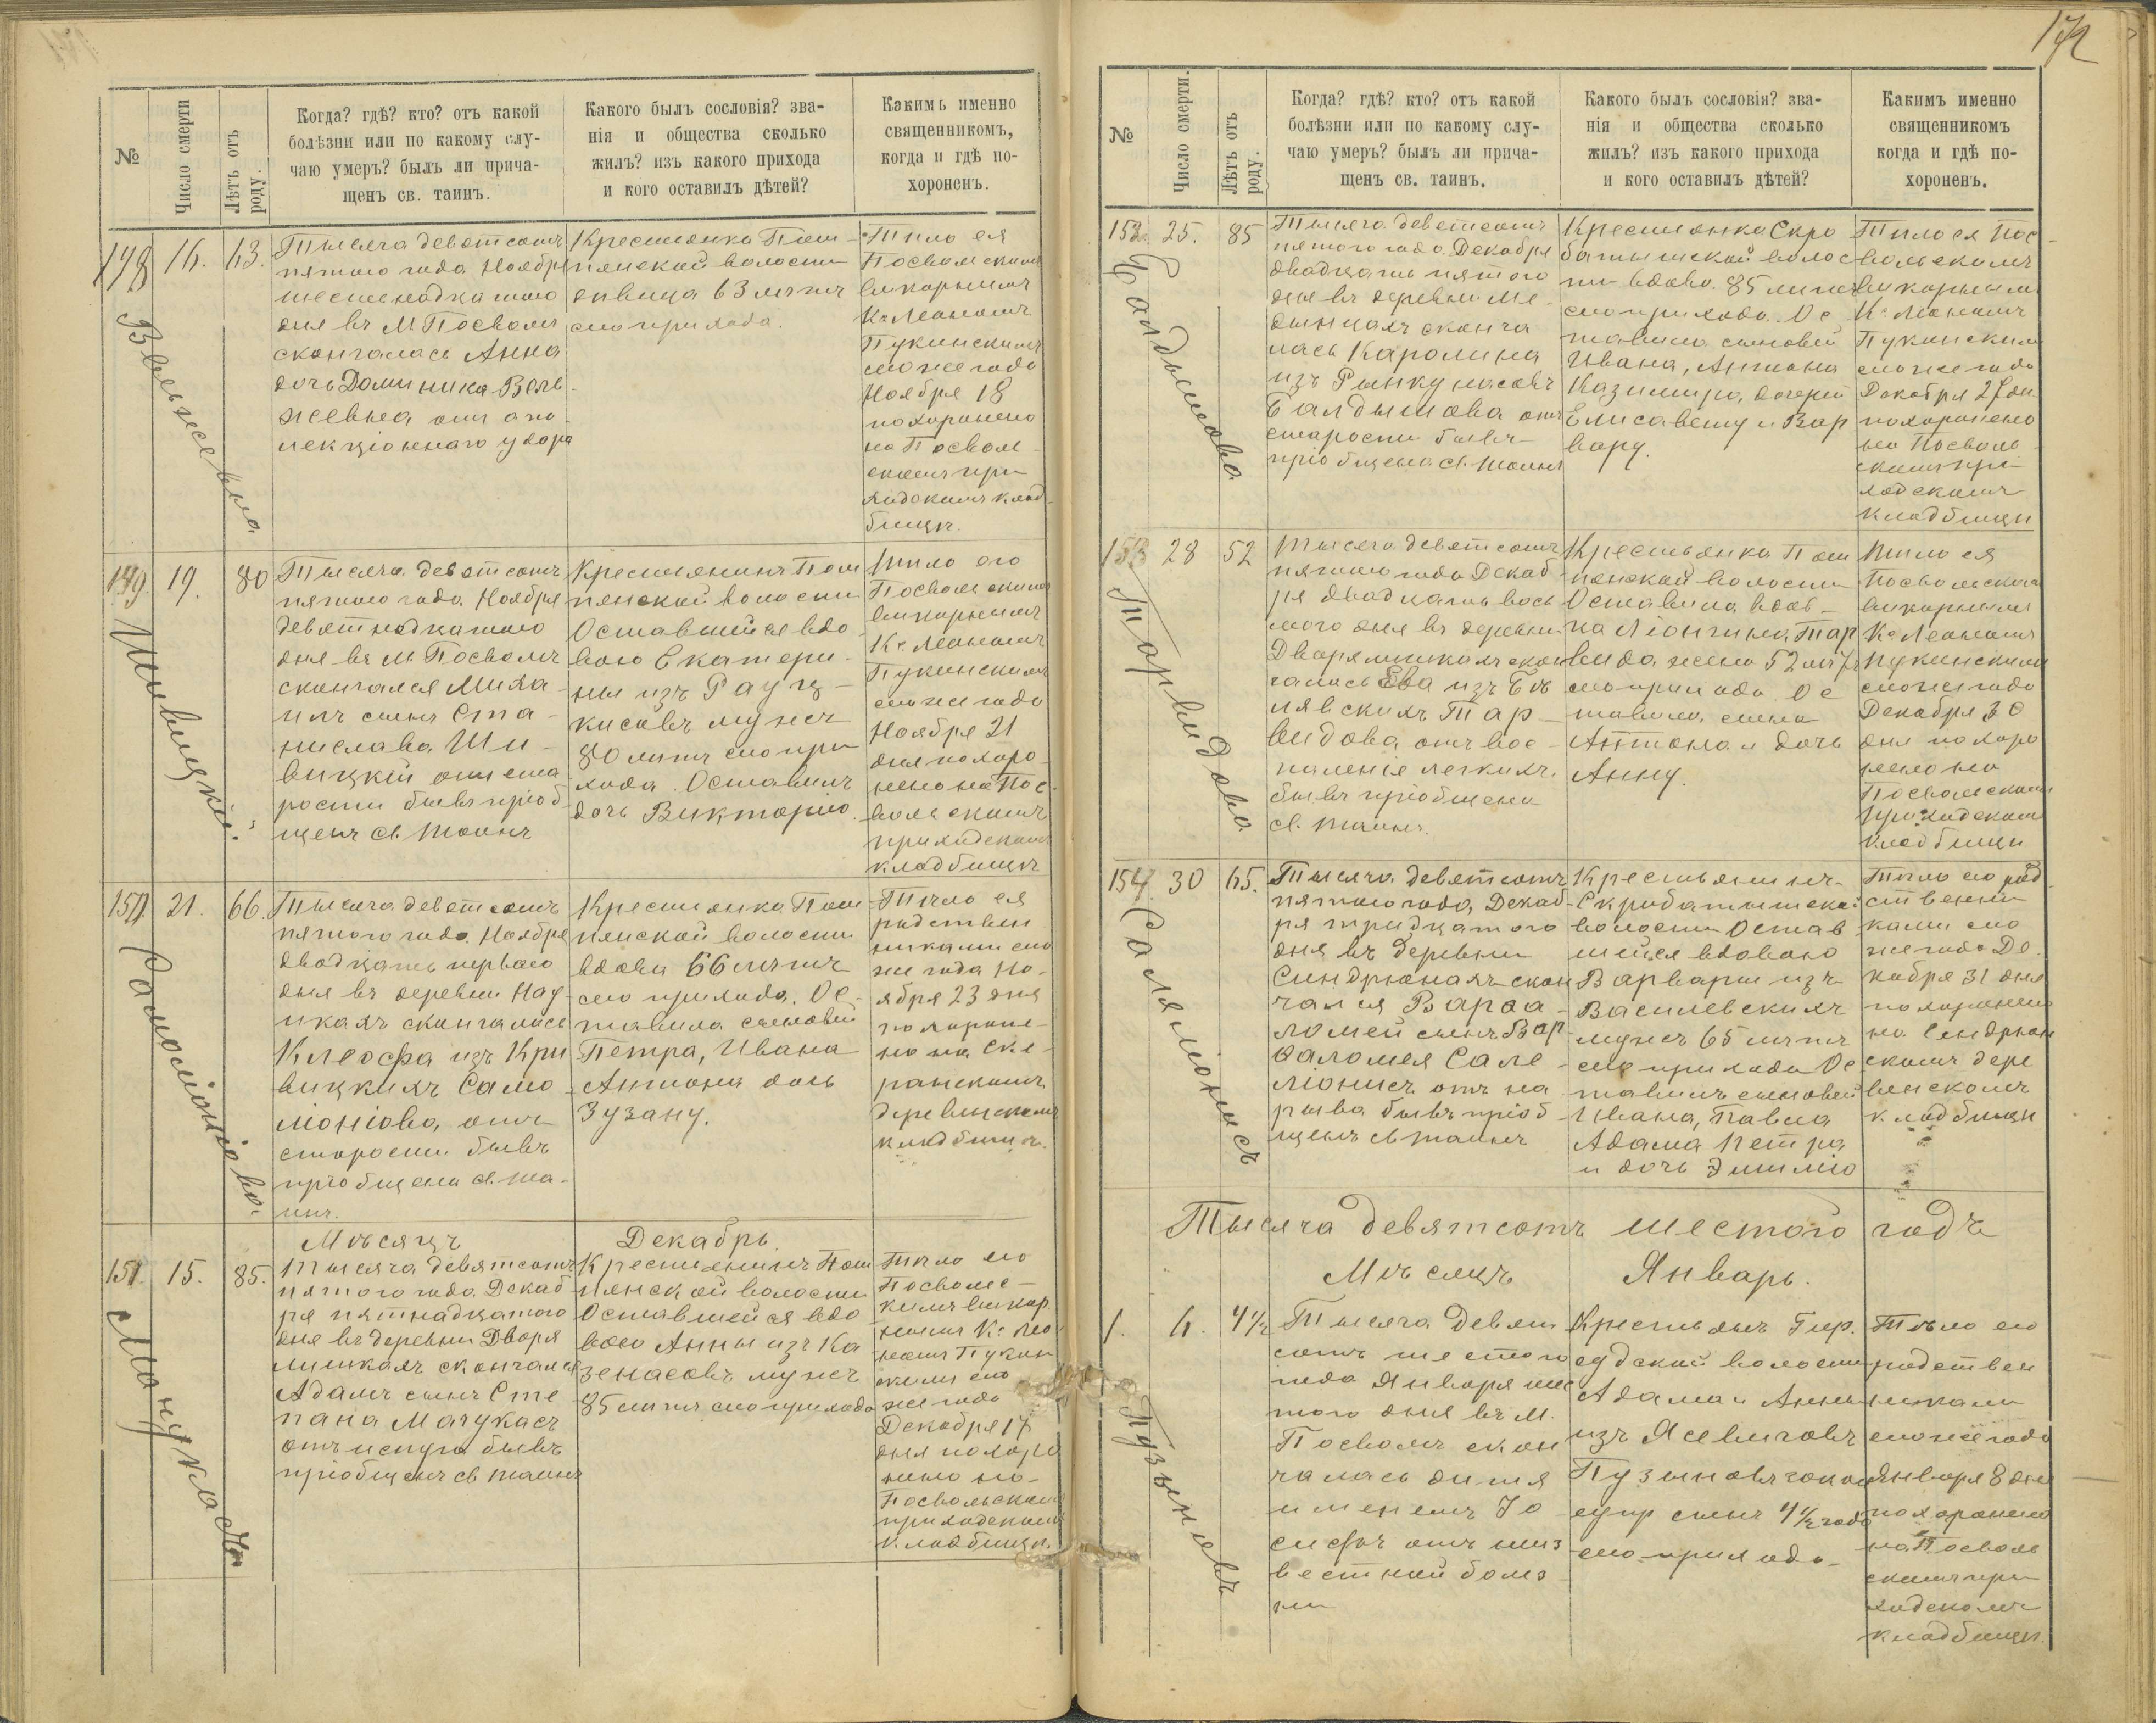 172
№
Число смерти
Лѣтъ отъ роду.
Когда? гдѣ? кто? отъ какой
болѣзни или по какому слу-
чаю умеръ? былъ ли прича-
щенъ св. таинъ.
Какого былъ сословія? зва-
нія и общества сколько
жилъ? изъ какого прихода
и кого оставилъ дѣтей?
Какимъ именно
священникомъ,
когда и гдѣ по-
хороненъ.
148
16.
63.
Вельжевна
Тысяча девятсотъ
пятого года Ноября
шестнадцатого
дня въ М Посволѣ
скончалась Анна
дочь Доминика Вель-
жевна отъ апо
лекціоннаго удара
Крестьянка Пом-
пянской волости
дѣвица 63 лѣтъ
сто прихода.
Тѣло ея
Посвольскимъ
викарнымъ
Кс Леономъ
Пукинскимъ
сто же года
Ноября 18
похоронено
на Посволь
скомъ при
ходскомъ клад-
бищѣ.
149.
19.
80
Шивицкій.
Тысяча девятсотъ
пятого года Ноября
девятнадцатого
дня въ м Посволѣ
скончался Миха-
илъ сынъ Ста-
нислава Ши-
вицкій отъ ста
рости бывъ пріоб
щенъ св таинъ
Крестьянинъ Пом
пянской волости
Оставшейся вдо
вою Екатери-
ны изъ Рауц-
кисовъ мужъ
80 лѣтъ сто при
хода. Оставилъ
дочь Викторію.
Тѣло его
Посвольскимъ
викарнымъ
Кс. Леономъ
Пукинскимъ
сто же года
Ноября 21
дня похоро
нено на Пос-
вольскомъ
приходскомъ
кладбищѣ
150.
21.
66.
Самоліоніова.
Тысяча девятсотъ
пятого года Ноября
двадцать первого
дня въ деревни Нау-
икахъ скончалась
Клеофа изъ Кри
вицкихъ Само
ліоніова, отъ
старости бывъ
пріобщена св. та-
инъ.
Крестьянка Пом
пянской волости
вдова 66 лѣтъ
сто прихода. Ос-
тавила сыновей
Петра, Ивана
Антона дочь
Зузану.
Тѣло ея
родствен
никами сто
же года Но-
ября 23 дня
похороне-
но на Ске-
ранскомъ
деревнскомъ
кладбищѣ.
Мѣсяцъ Декабрь.
151.
15.
85.
Мачукасъ
Тысяча девятсотъ
пятого года Декаб
ря пятнадцатого
дня въ деревни Дворя
лишкахъ скончался
Адамъ сынъ Сте
пана Мачукасъ
отъ испуга бывъ
пріобщенъ св таинъ
Крестьянинъ Пом
пянской волости
Оставшейся вдо
вою Анны изъ Ка
зенасовъ мужъ
85 лѣтъ сто прихода
Тѣло его
Посволь-
кимъ викар
нымъ Кс Лео
номъ Пукин
скимъ сто
же года
Декабря 17
дня похоро
нено на-
Посвольскомъ
приходскомъ
кладбищѣ.
№
Число смерти.
Лѣтъ отъ роду.
Когда? гдѣ? кто? отъ какой
болѣзни или по какому слу-
чаю умеръ? былъ ли прича-
щенъ св. таинъ.
Какого былъ сословія? зва-
нія и общества сколько
жилъ? изъ какого прихода
и кого оставилъ дѣтей?
Какимъ именно
священникомъ
когда и гдѣ по-
хороненъ.
152.
25.
85
Балдышова.
Тысяча девятсотъ
пятого года Декабря
двадцать пятого
дня въ деревни Ме-
дынцахъ сконча
лась Каролина
изъ Рынкунасовъ
Балдышова отъ
старости бывъ
пріобщена св. таинъ
Крестьянка Скро
батышской волос
ти вдова 85 лѣтъ
сто прихода. Ос
тавила сыновей
Ивана, Антона
Казимира, дочерей
Елисавету и Вар
вару.
Тѣло ея Пос-
вольскимъ
викарнымъ
Кс. Леономъ
Пукинскимъ
сто же года
Декабря 27 дн
похоронено
на Посволь
скомъ при
ходскомъ
кладбищѣ
153
28
52
Тарвидова.
Тысяча девятсотъ
пятого года Декаб
ря двадцать вось
мого дня въ деревни
Дворялишкахъ скон
чалась Ева изъ Бѣ
лявскихъ Тар-
видова, отъ вос-
паленіе легкихъ.
бывъ пріобщена
св. таинъ.
Крестьянка Пом
пянской волости
Оставила вдов-
ца Лонгина Тар
вида жена 52 лѣтъ
сто прихода Ос
тавила сына
Антона и дочь
Анну.
Тѣло ея
Посвольскимъ
викарнымъ
Кс Леономъ
Пукинскимъ
сто же года
Декабря 30
дня похоро
нено на
Посвольскомъ
приходскомъ
кладбищѣ
154.
30
65.
Салямонисъ
Тысяча девятсотъ
пятого года, Декаб
ря тридцатого
дня въ деревни
Синдрюнахъ скон
чался Варфа-
ломей сынъ Вар
фаломея Сале-
ліонисъ отъ на
рыва бывъ пріоб
щенъ св таинъ
Крестьянинъ
Скробатышской
волости Остав
шейся вдовою
Варвары изъ
Василевскихъ
мужъ 65 лѣтъ
сто прихода Ос
тавилъ сыновей
Ивана, Павла
Адама Петра
и дочь Эмилію
Тѣло его род
ствен
ками сто
же года Де
кабря 31 дня
похоронено
на Синдрюн
скомъ дере
венскомъ
кладбищѣ
Тысяча девятсотъ шестого годъ
Мѣсяцъ Январь.
1.
6.
4½
Пузыновъ
Тысяча девят
сотъ шестого
года Января шес
того дня въ М.
Посволѣ скон
чалась дитя
именемъ Іо
сифъ отъ неиз
вестной болѣз
ни
Крестьянъ Гир.
судской волости
Адама и Анны
изъ Ясевичовъ
Пузыновъ законн
сущр сынъ 4½ года
сто прихода
Тѣло его
родствен
никами
сто же года
Января 8 дня
похоронено
на Посволь
скомъ при
ходскомъ
кладбищѣ.